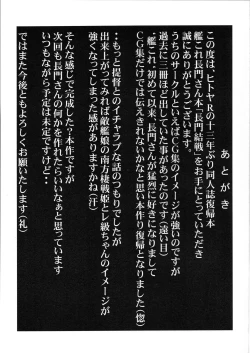 あとがき
この度は、ヒトヤRの十三年ぶり同人誌復帰本
艦これ長門さん本「長門結戦」をお手にとっていただき
誠にありがとうございます。
うちのサークルといえばCG集のイメージが強いのですが
過去に三冊ほど出していた事があったのです(遠い目)
・艦これ、初めて以来、長門さんが猛烈に好きになりまして
CG集だけでは伝えきれないかなと思い本作り復帰となりました(惚)
・もっと提督とのイチャラブな話のつもりでしたが
出来上がってみれば深海艦娘の南方棲戦姫とレ級ちゃんのイメージが
強くなってしまった感がありますかね(汗)
そんな感じで完成した?本作ですが
次回も長門さんの何かを作れたらいいなぁと思っています
いつもながら予定は未定ですけど・
ではまた今後ともよろしくお願いたします(礼)